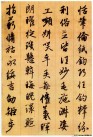 恬筆倫紙鈞巧任釣釋紛
利俗並皆佳妙毛施淑姿
工顰妍笑年矢每催曦暉
朗曜璇璣懸斡晦魄環照
指薪修祜永綏吉劭矩步